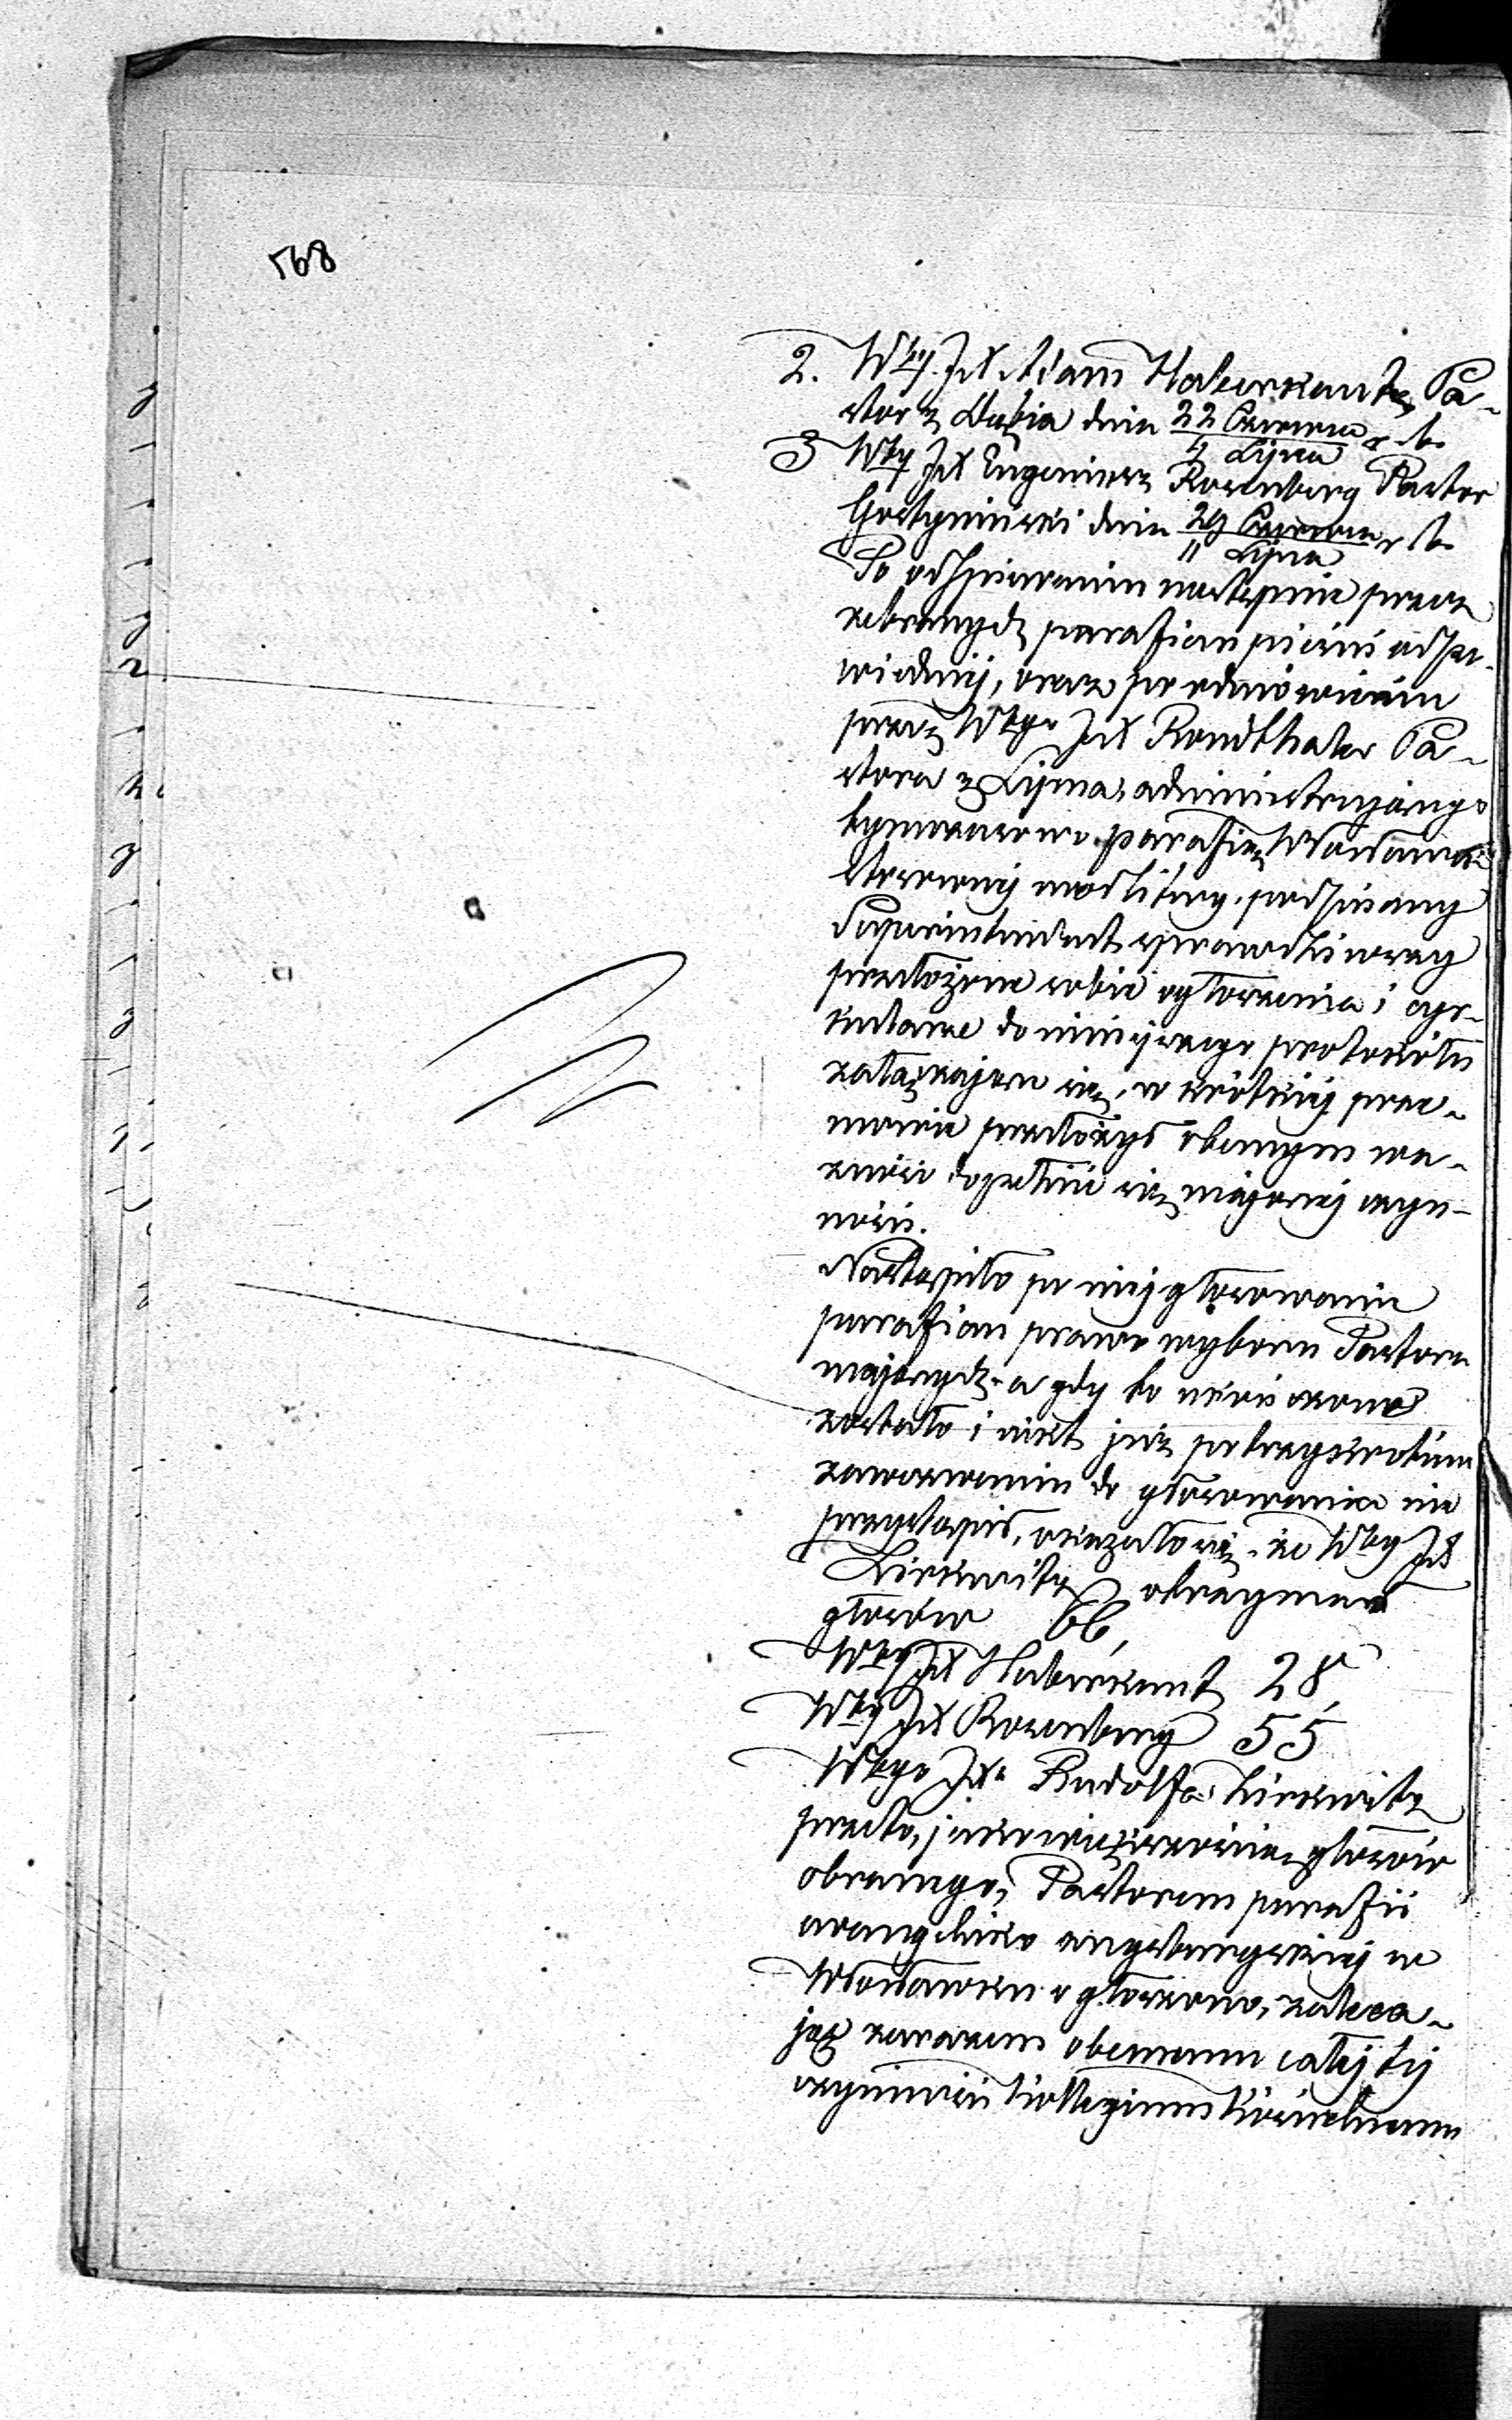 568
2. Wby. JX. Adam Haberkantz, Pa-
stor z Dąbia dnia 22 Czerwca / 4 Lipca r. b.
3 Wby JX Eugeniusz Rosenberg Pastor
Gostyninski dnia 29 Czerwca / 11 Lipca r. b.
Po odśpiewaniu następnie przez
zebranych parafian pieśni odpo-
wiedniej, oraz po odmówieniu
przez Wbgo JX Rondthaler Pa-
stora z Lipna, administrującego
tymczasowo parafią Włocławska
stosownej modlitwy, podpisany
Superintendent sprawdziwszy
przedłożone sobie ogłoszenia i cyr-
kularze do niniejszego protokółu
załączające się, w krótkiej prze-
mowie przedłożył obecnym wa-
żność dopełnić się mającej czyn-
ności.
Nastąpiło po niej głosowanie
parafian prawo wyboru Pastora
mających, a gdy to ukończone
zostało i nikt już po trzykrotnem
zawezwaniu do głosowania nie
przystąpił, okazało się, że Wby JX
Zirkwitz otrzymał
głosów 66,
Wby JX Haberkant 28,
Wby JX Rosenberg 55
Wbgo JXa Rudolfa Zirkwitz
przeto, jako większością głosów
obranego, Pastorem parafii
ewangelicko augsburgskiej w
Włocławku ogłoszono, zaleca-
jąc zarazem obecnemu całej tej
czynności Kollegium Kościelnemu